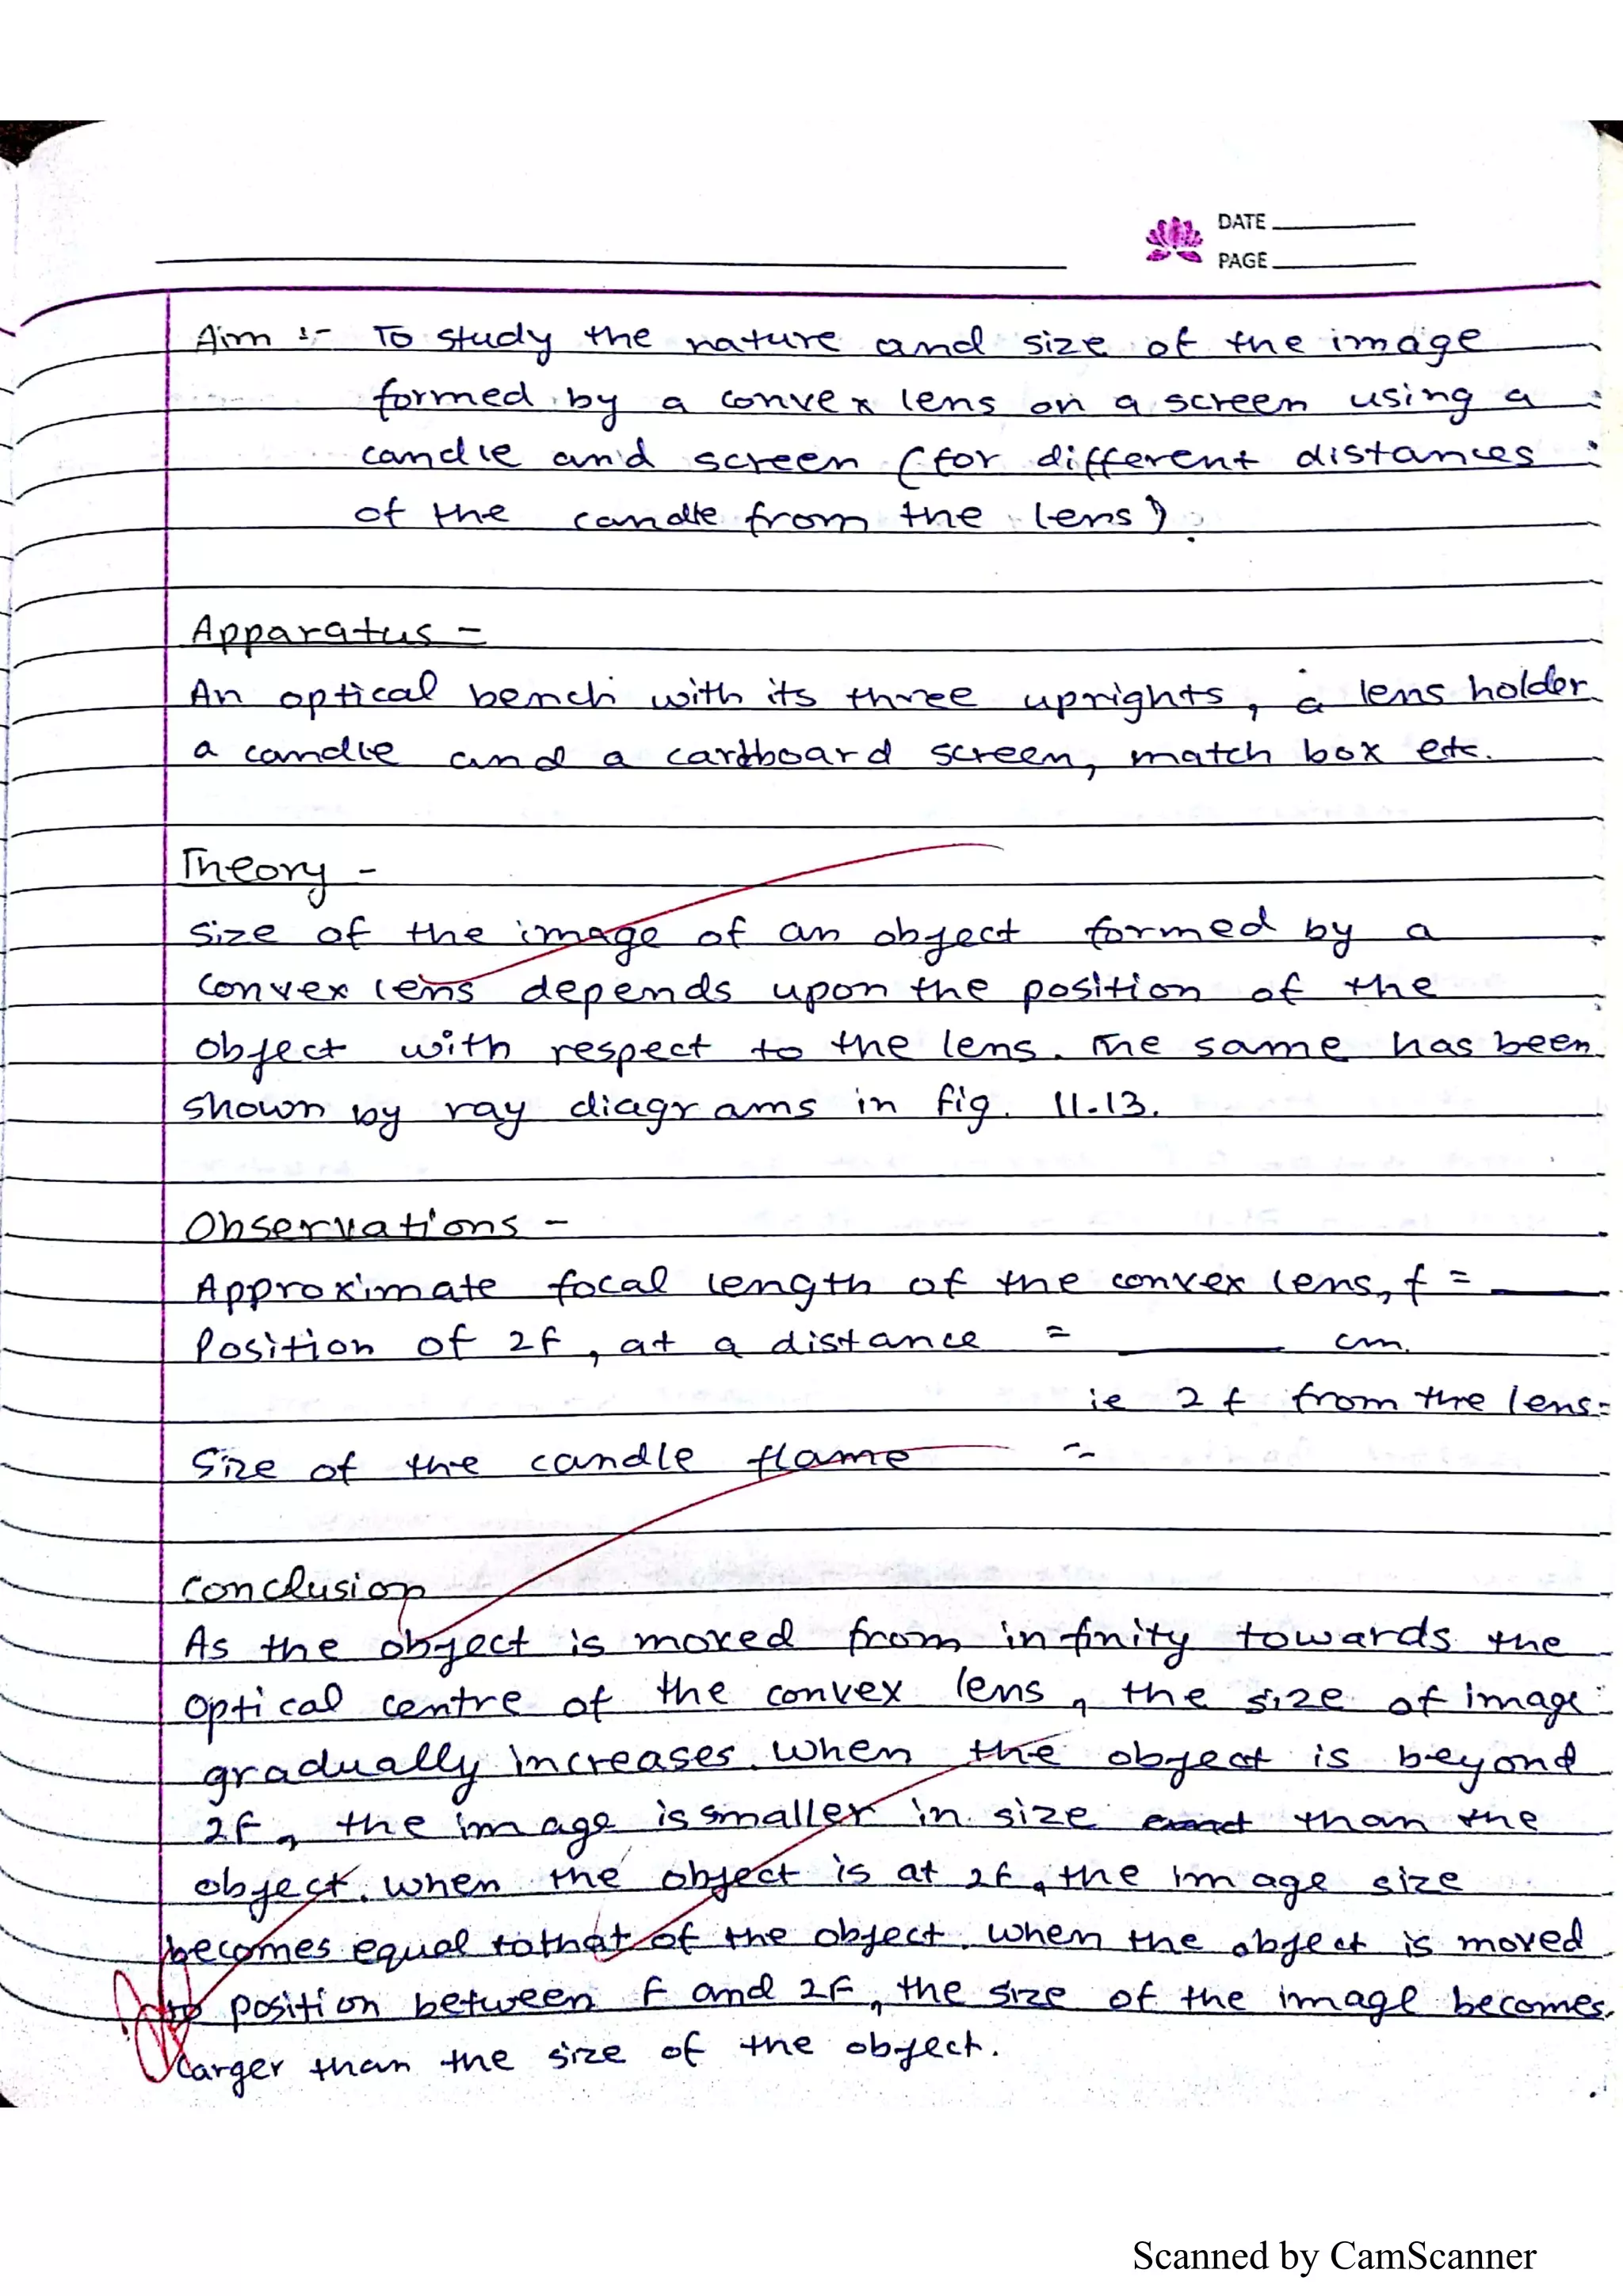 DATE
PAGE
Aim :- To study the nature and size of the image
formed by a convex lens on a screen using a
candle and screen (for different distances
of the candle from the lens).
Apparatus -
An optical bench with its three uprights, a lens holder
a candle and a cardboard screen, match box etc.
Theory -
Size of the image of an object formed by a
convex lens depends upon the position of the
object with respect to the lens. The same has been
shown by ray diagrams in fig. 11.13.
Observations -
Approximate focal length of the convex lens, f =
Position of 2F, at a distance = cm.
ie 2f from the lens=
Size of the candle flame =
Conclusion
As the object is moved from infinity towards the
optical centre of the convex lens, the size of image
gradually increases. When the object is beyond
2F, the image is smaller in size than the
object. When the object is at 2f, the image size
becomes equal to that of the object. When the object is moved
to position between F and 2F, the size of the image becomes
larger than the size of the object.
Scanned by CamScanner